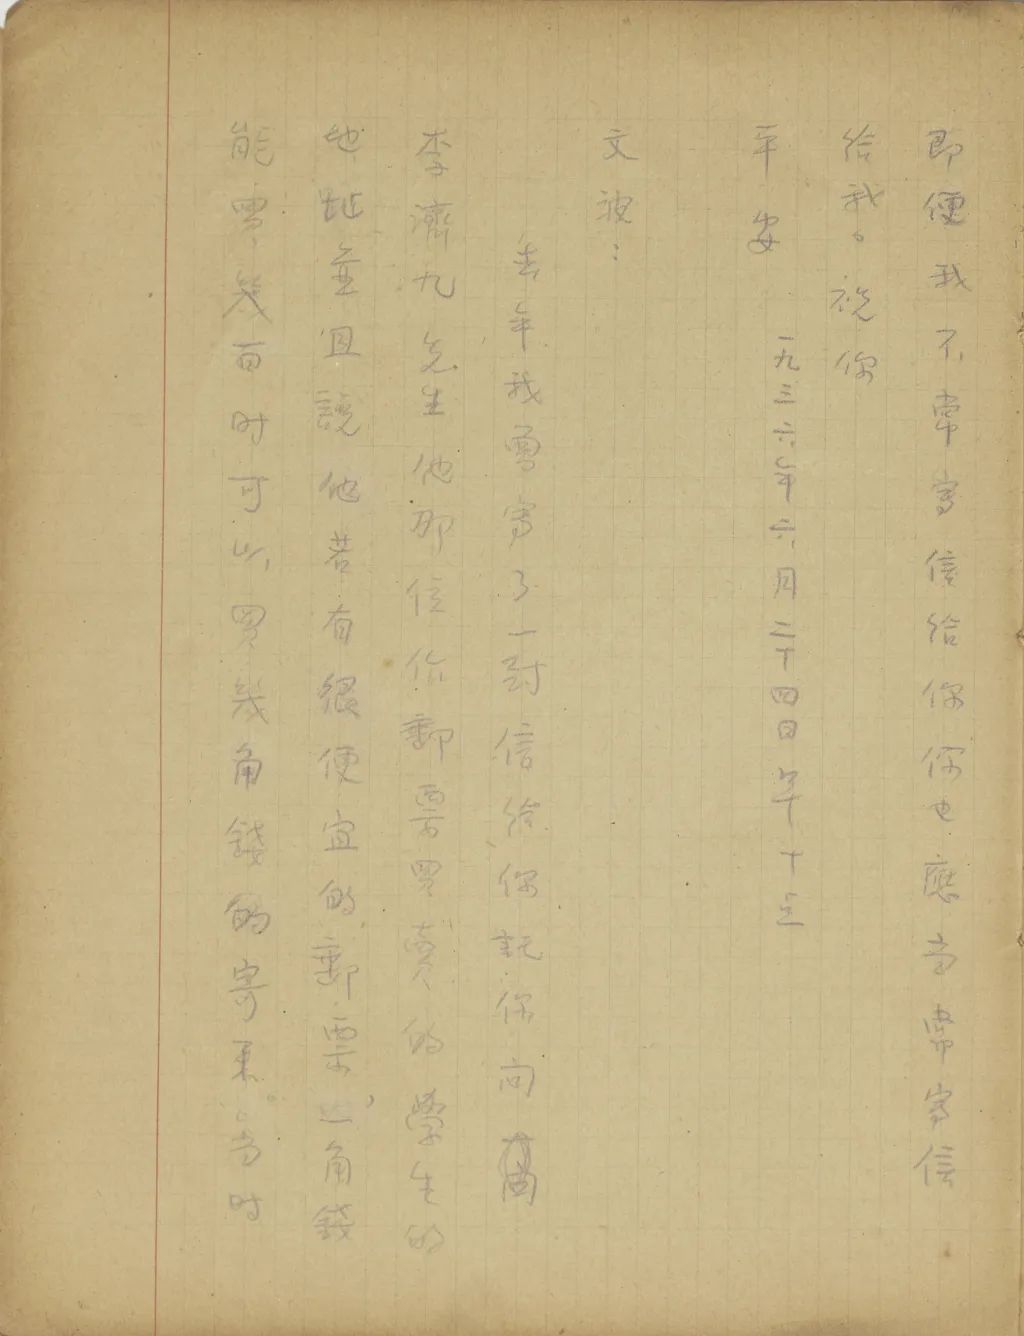 即便我不常寫信給你你也應當常寫信
給我。祝你
平安
一九三六年六月二十四日午十点
文波：
去年我曾寫了一封信給你託你向
李濟九先生他那位作郵票買賣的學生的
地址並且說他若有很便宜的郵票，角錢
能買幾百时可以買幾角錢的寄來。当时